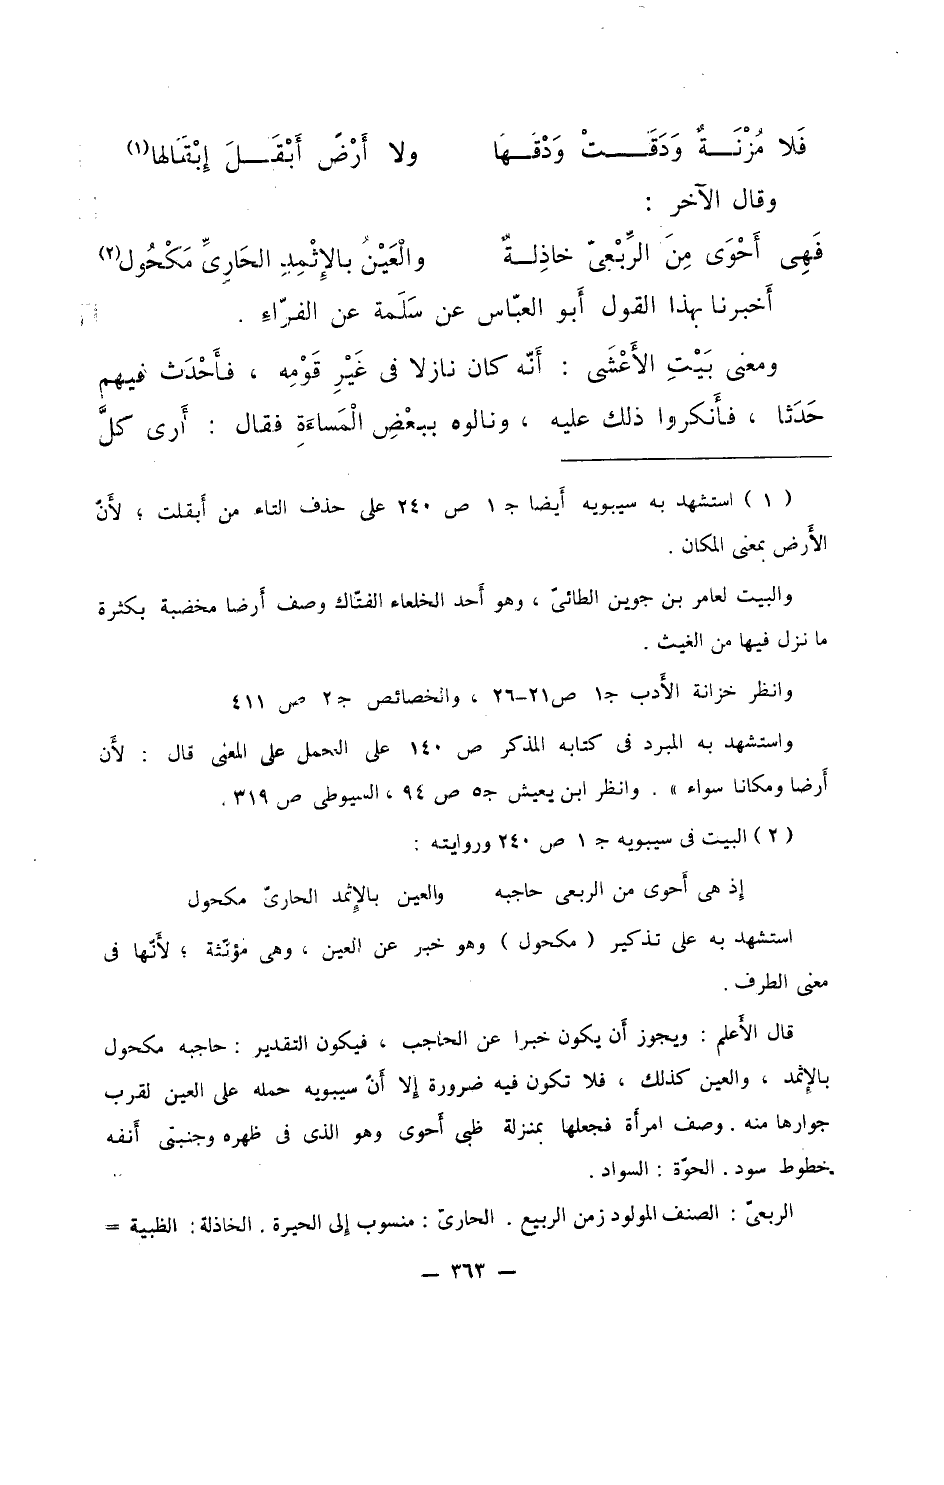 فَلا مُزْنَـــةٌ وَدَقَـــــتْ وَدْقَـــهَا ولا أَرْضَ أَبْقَـــلَ إِبْقَالها(١)
وقال الآخر :
فَهِى أَحْوَى مِنَ الرِّبْعِىّ خاذِلـــةٌ والْعَيْنُ بالإِثْمِدِ الحَارِىِّ مَكْحُول(٢)
أَخبرنا بهذا القول أَبو العبّاس عن سَلَمة عن الفرّاء .
ومعنى بَيْتِ الأَعْشَى : أَنّه كان نازلا فى غَيْرِ قَوْمِه ، فأَحْدَث فيهم
حَدَثا ، فأَنكروا ذلك عليه ، ونالوه ببعْضِ الْمَساءَةِ فقال : أَرى كلَّ
( ١ ) استشهد به سيبويه أَيضا جـ ١ ص ٢٤٠ على حذف التاء من أَبقلت ؛ لأَنّ
الأَرض بمعنى المكان .
والبيت لعامر بن جوين الطائىّ ، وهو أَحد الخلعاء الفتّاك وصف أَرضا مخضبة بكثرة
ما نزل فيها من الغيث .
وانظر خزانة الأَدب جـ١ ص٢١-٢٦ ، والخصائص جـ٢ ص ٤١١
واستشهد به المبرد فى كتابه المذكر ص ١٤٠ على الحمل على المعنى قال : لأَن
أَرضا ومكانا سواء » . وانظر ابن يعيش جـ٥ ص ٩٤ ، السيوطى ص ٣١٩ .
( ٢ ) البيت فى سيبويه جـ ١ ص ٢٤٠ وروايته :
إِذ هى أَحوى من الربعى حاجبه والعين بالإِثمد الحارىّ مكحول
استشهد به على تذكير ( مكحول ) وهو خبر عن العين ، وهى مؤنّثة ؛ لأَنّها فى
معنى الطرف .
قال الأَعلم : ويجوز أَن يكون خبرا عن الحاجب ، فيكون التقدير : حاجبه مكحول
بالإِثمد ، والعين كذلك ، فلا تكون فيه ضرورة إِلا أَنّ سيبويه حمله على العين لقرب
جوارها منه . وصف امرأَة فجعلها بمنزلة ظبى أَحوى وهو الذى فى ظهره وجنبتى أَنفه
خطوط سود . الحوّة : السواد .
الربعىّ : الصنف المولود زمن الربيع . الحارىّ : منسوب إلى الحيرة . الخاذلة : الظبية =
— ٣٦٣ —